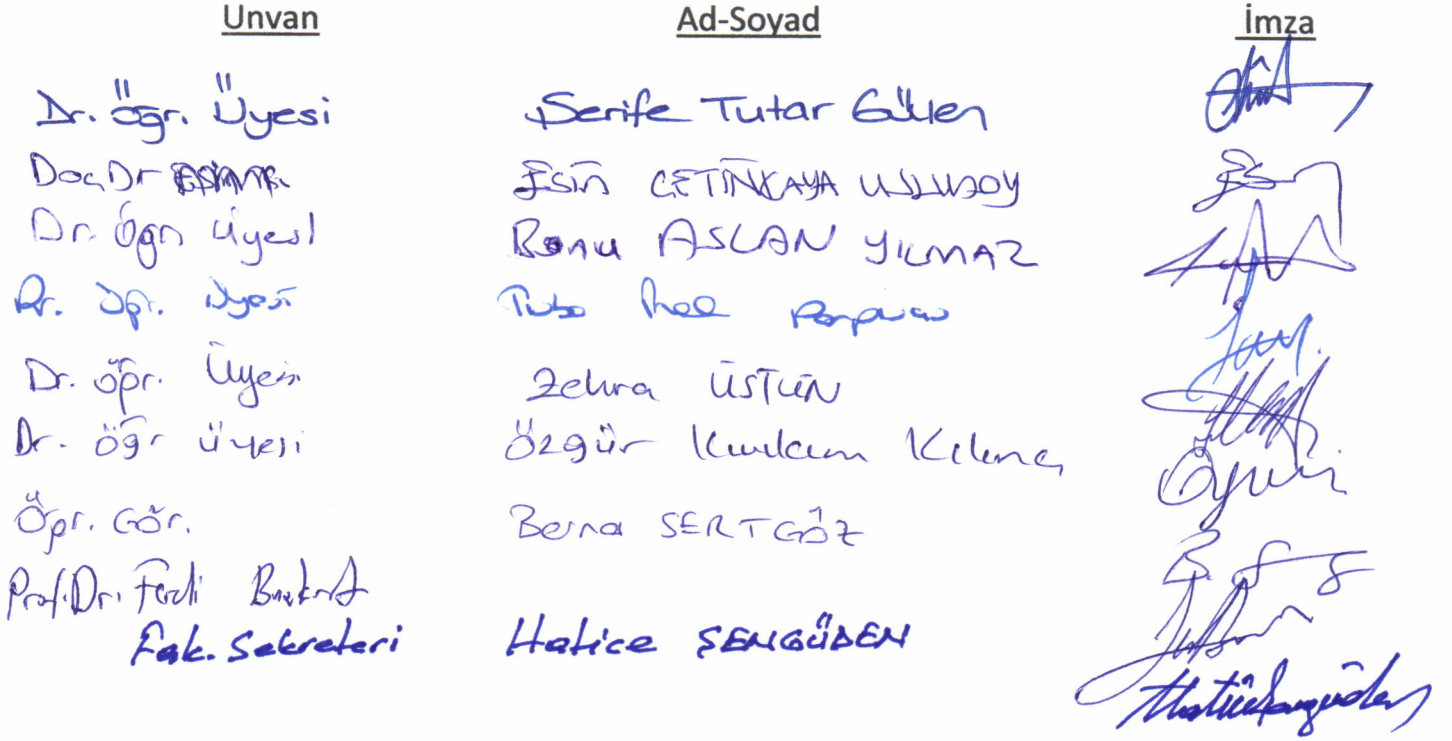 Unvan Ad-Soyad İmza
Dr. Öğr. Üyesi Şerife Tutar Güllen
Doç Dr Esin ÇETİNKAYA USLUSOY
Dr. Öğn Üyesi Banu ASLAN YILMAZ
Dr. Öğr. Üyesi Tuba
Dr. Öğr. Üyesi Zehra ÜSTÜN
Dr. öğr üyesi Özgür Kılınç
Öğr. Gör. Berna SERTGÖZ
Prof. Dr. Ferdi
Fak. Sekreteri Hatice ŞENGÜDEN